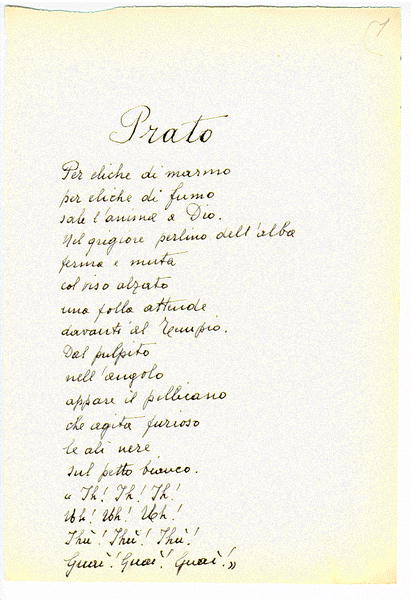 1
Prato
Per eliche di marmo
per eliche di fumo
sale l'anima a Dio.
Nel grigiore perlino dell'alba
ferma e muta
col viso alzato
una folla attende
davanti al Tempio.
Dal pulpito
nell'angolo
appare il pellicano
che agita furioso
le ali nere
sul petto bianco.
« Ih! Ih! Ih!
Uh! Uh! Uh!
Ihù! Ihù! Ihù!
Guai! Guai! Guai! »